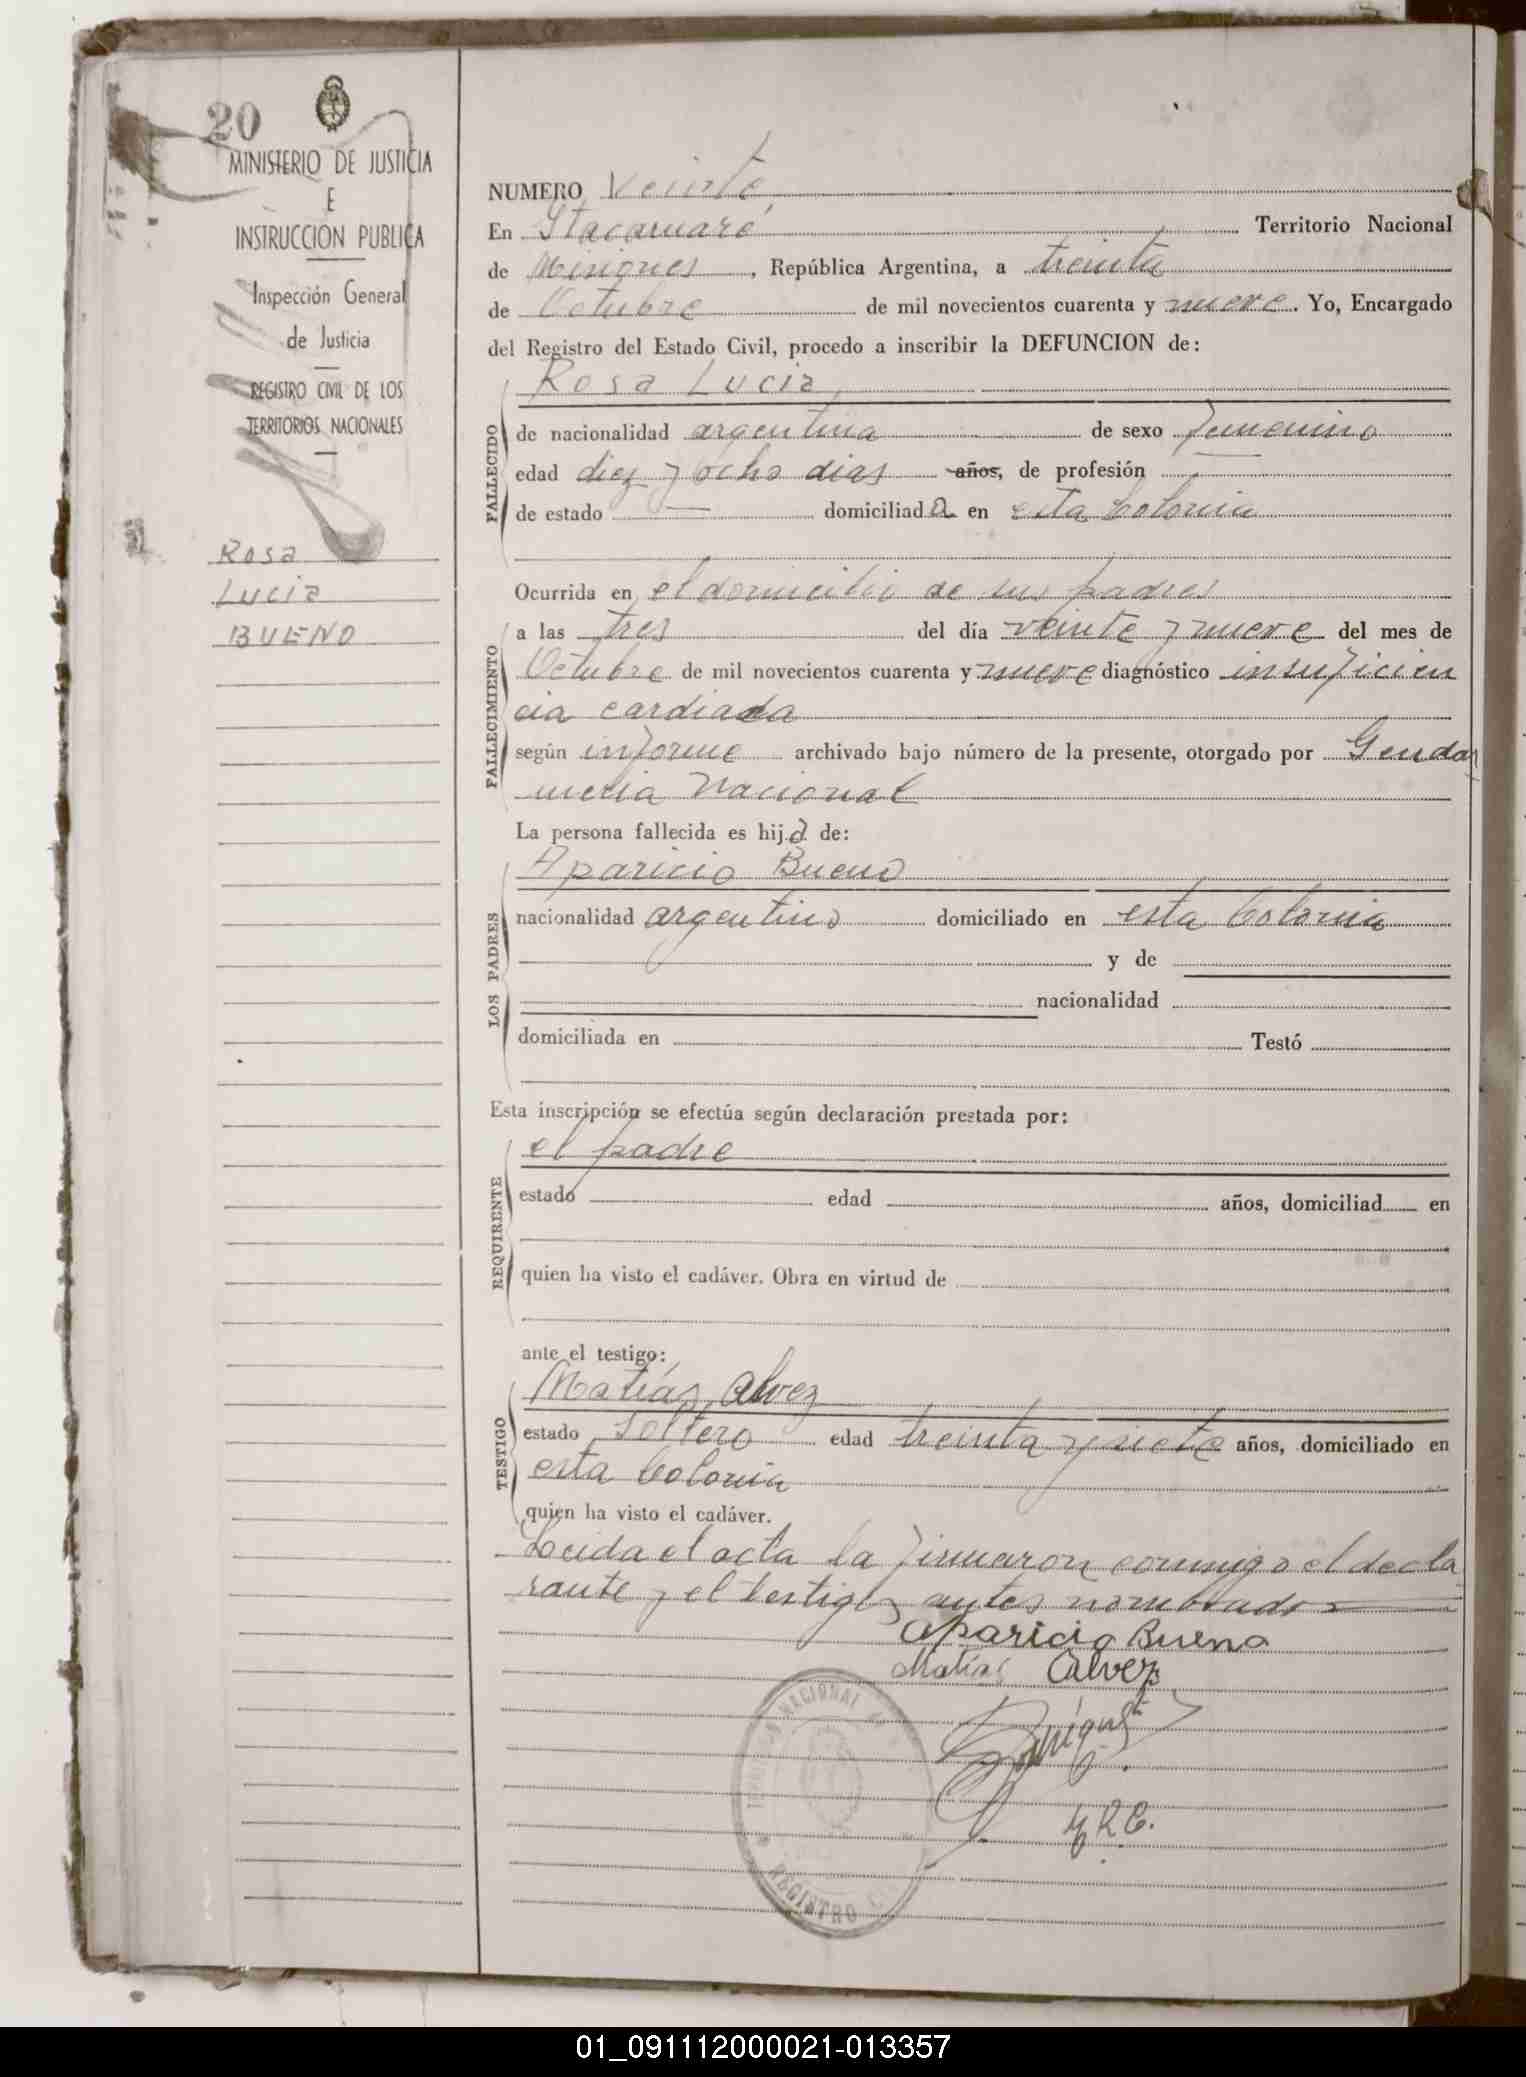 20
MINISTERIO DE JUSTICIA
E
INSTRUCCION PUBLICA
Inspección General
de Justicia
REGISTRO CIVIL DE LOS
TERRITORIOS NACIONALES
Rosa
Lucia
BUENO
NUMERO Veinte
En Itacaruaré Territorio Nacional
de Misiones, República Argentina, a treinta
de Octubre de mil novecientos cuarenta y nueve. Yo, Encargado
del Registro del Estado Civil, procedo a inscribir la DEFUNCION de:
Rosa Lucia
FALLECIDO
de nacionalidad argentina de sexo femenino
edad diez y ocho dias años, de profesión
de estado — domiciliada en esta Colonia
FALLECIMIENTO
Ocurrida en el domicilio de sus padres
a las tres del día veinte y nueve del mes de
Octubre de mil novecientos cuarenta y nueve diagnóstico insuficien
cia cardiaca
según informe archivado bajo número de la presente, otorgado por Gendar
meria Nacional
La persona fallecida es hija de:
LOS PADRES
Aparicio Bueno
nacionalidad argentino domiciliado en esta Colonia
y de
nacionalidad
domiciliada en Testó
Esta inscripción se efectúa según declaración prestada por:
REQUIRENTE
el padre
estado edad años, domiciliad en
quien ha visto el cadáver. Obra en virtud de
ante el testigo:
TESTIGO
Matías Alvez
estado Soltero edad treinta y siete años, domiciliado en
esta Colonia
quien ha visto el cadáver.
Leida el acta la firmaron conmigo el decla
rante y el testigo antes nombrado
Aparicio Bueno
Matías Alvez
TERRITORIO NACIONAL
REGISTRO
01_091112000021-013357